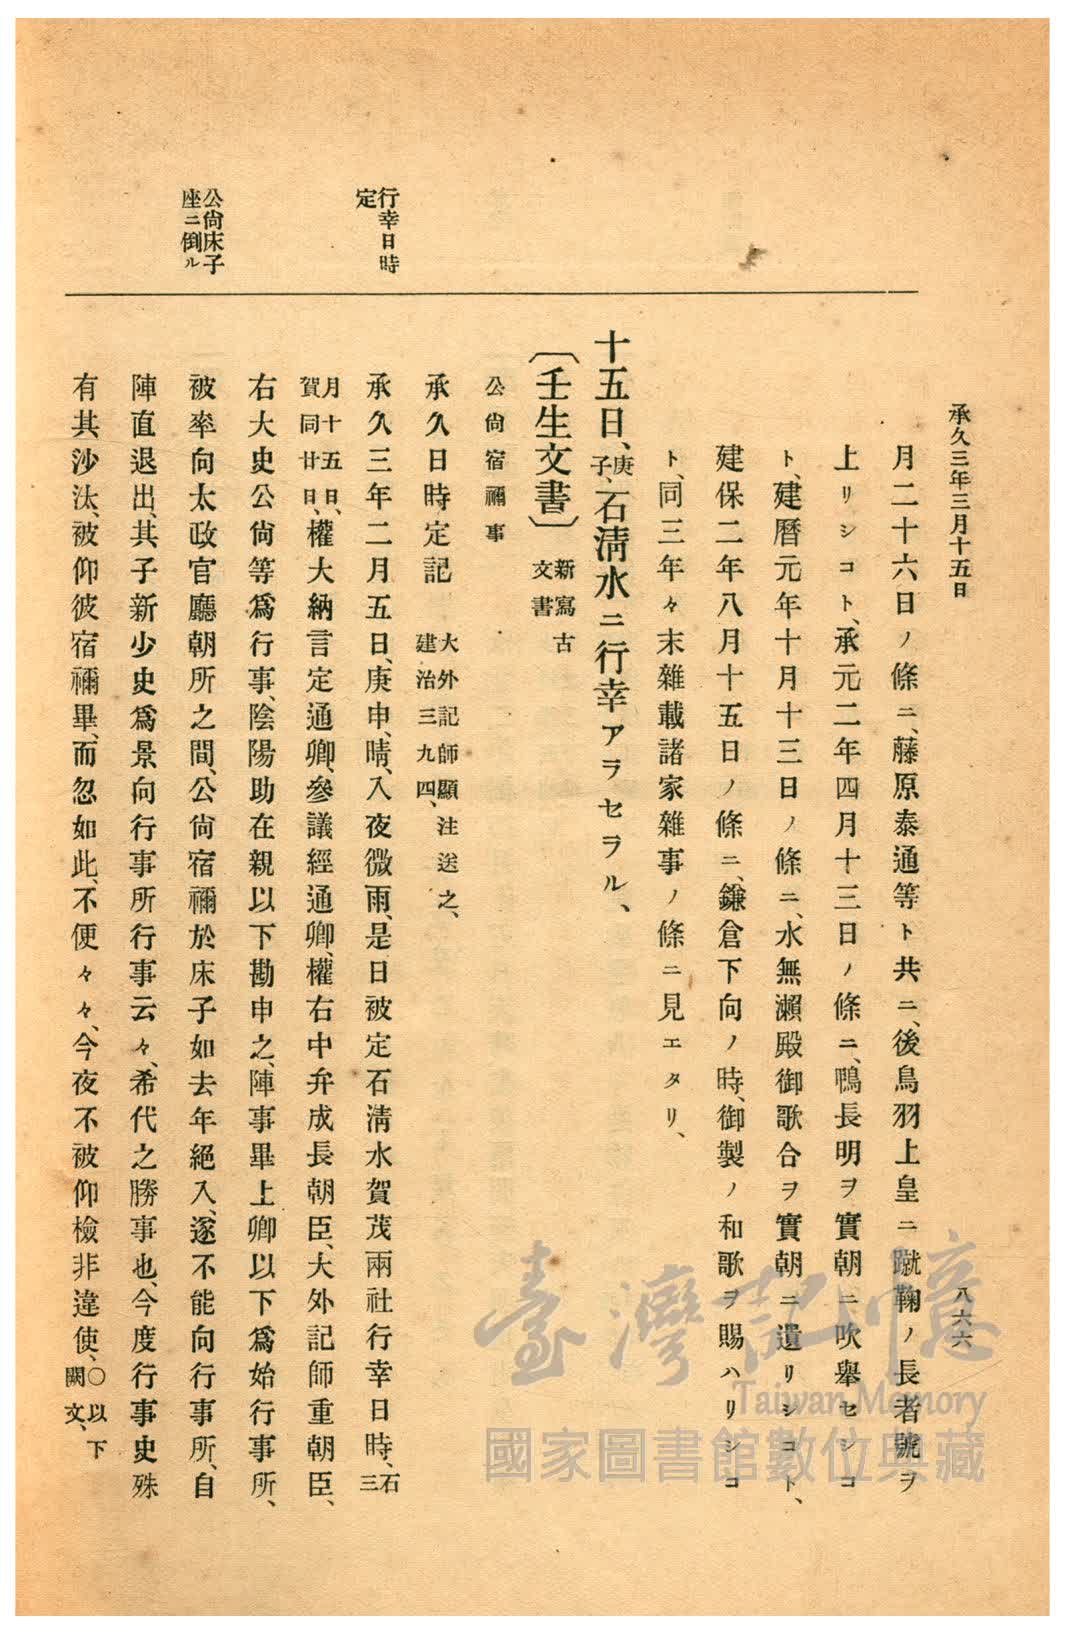 承久三年三月十五日
八六六
月二十六日ノ條ニ、藤原泰通等ト共ニ、後鳥羽上皇ニ蹴鞠ノ長者號ヲ
上リシコト、承元二年四月十三日ノ條ニ、鴨長明ヲ實朝ニ吹擧セシコ
ト、建曆元年十月十三日ノ條ニ、水無瀨殿御歌合ヲ實朝ニ遣リシコト、
建保二年八月十五日ノ條ニ、鎌倉下向ノ時、御製ノ和歌ヲ賜ハリシコ
ト、同三年々末雜載諸家雜事ノ條ニ見エタリ、
十五日、庚子、石淸水ニ行幸アラセラル、
〔壬生文書〕新寫古文書
公尙宿禰事
承久日時定記 大外記師顯注送之、建治三九四、
行幸日時定
承久三年二月五日、庚申、晴、入夜微雨、是日被定石淸水賀茂兩社行幸日時、石三
月十五日、賀同廿日、權大納言定通卿、參議經通卿、權右中弁成長朝臣、大外記師重朝臣、
右大史公尙等爲行事、陰陽助在親以下勘申之、陣事畢上卿以下爲始行事所、
公尙床子座ニ倒ル
被率向太政官廳朝所之間、公尙宿禰於床子如去年絕入、遂不能向行事所、自
陣直退出、其子新少史爲景向行事所行事云々、希代之勝事也、今度行事史殊
有其沙汰、被仰彼宿禰畢、而忽如此、不便々々、今夜不被仰檢非違使、○以下闕文、
臺灣記憶
Taiwan Memory
國家圖書館數位典藏